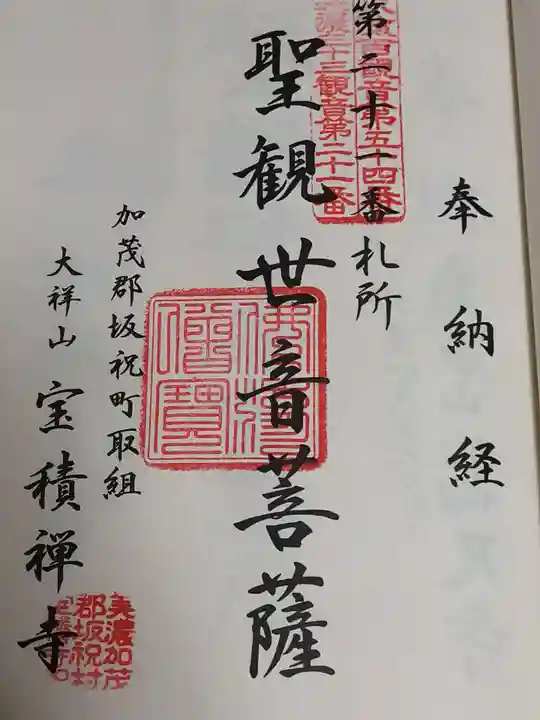 奉納経
第二十番札所
聖観世音菩薩
加茂郡坂祝町取組
大祥山 宝積禅寺
百観音第五十四番
三十三観音第二十一番
佛法僧寶
美濃加茂
郡坂祝村